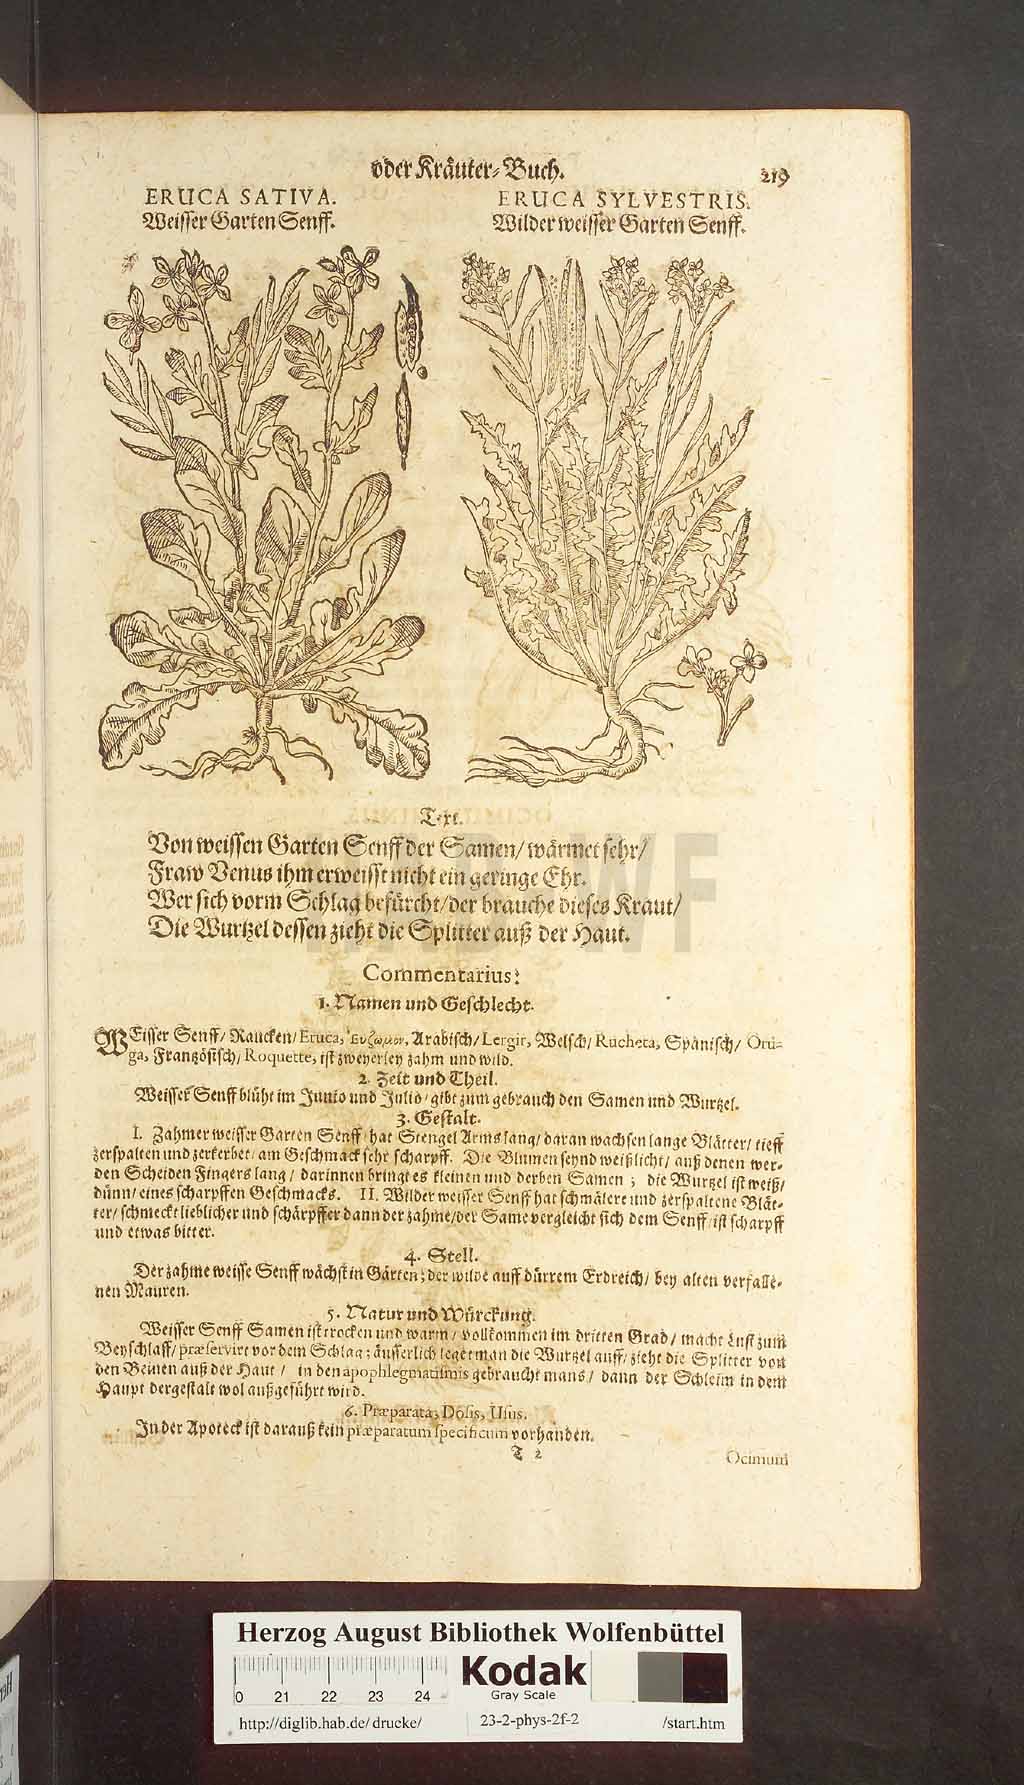 oder Kräuter-Buch.
219
ERUCA SATIVA.
Weisser Garten Senff.
ERUCA SYLVESTRIS.
Wilder weisser Garten Senff.
Text.
Von weissen Garten Senff der Samen/ wärmet sehr/
Fraw Venus ihm erweisst nicht ein geringe Ehr.
Wer sich vorm Schlag befürcht/ der brauche dieses Kraut/
Die Wurtzel dessen zieht die Splitter auß der Haut.
Commentarius:
1. Namen und Geschlecht.
WEisser Senff/ Raucken/ Eruca, Εὐζωμον, Arabisch/ Lergir, Welsch/ Rucheta, Spänisch/ Oru-
ga, Frantzösisch/ Roquette, ist zweyerley zahm und wild.
2. Zeit und Theil.
Weisser Senff blüht im Junio und Julio/ gibt zum gebrauch den Samen und Wurtzel.
3. Gestalt.
I. Zahmer weisser Garten Senff/ hat Stengel Arms lang/ daran wachsen lange Blätter/ tieff
zerspalten und zerkerbet/ am Geschmack sehr scharpff. Die Blumen seynd weißlicht/ auß denen wer-
den Scheiden Fingers lang/ darinnen bringt es kleinen und derben Samen; die Wurtzel ist weiß/
dünn/ eines scharpffen Geschmacks. II. Wilder weisser Senff hat schmälere und zerspaltene Blät-
ter/ schmeckt lieblicher und schärpffer dann der zahme/ der Same vergleicht sich dem Senff/ ist scharpff
und etwas bitter.
4. Stell.
Der zahme weisse Senff wächst in Gärten; der wilde auff dürrem Erdreich/ bey alten verfalle-
nen Mauren.
5. Natur und Würckung.
Weisser Senff Samen ist trocken und warm/ vollkommen im dritten Grad/ macht Lust zum
Beyschlaff/ præservirt vor dem Schlag; äusserlich leget man die Wurtzel auff/ zieht die Splitter von
den Beinen auß der Haut/ in den apophlegmatismis gebraucht mans/ dann der Schleim in dem
Haupt dergestalt wol außgeführt wird.
6. Præparata, Dosis, Usus.
In der Apoteck ist darauß kein præparatum specificum vorhanden.
T 2
Ocimum
Herzog August Bibliothek Wolfenbüttel
0 21 22 23 24
Kodak
Gray Scale
http://diglib.hab.de/drucke/
23-2-phys-2f-2
/start.htm